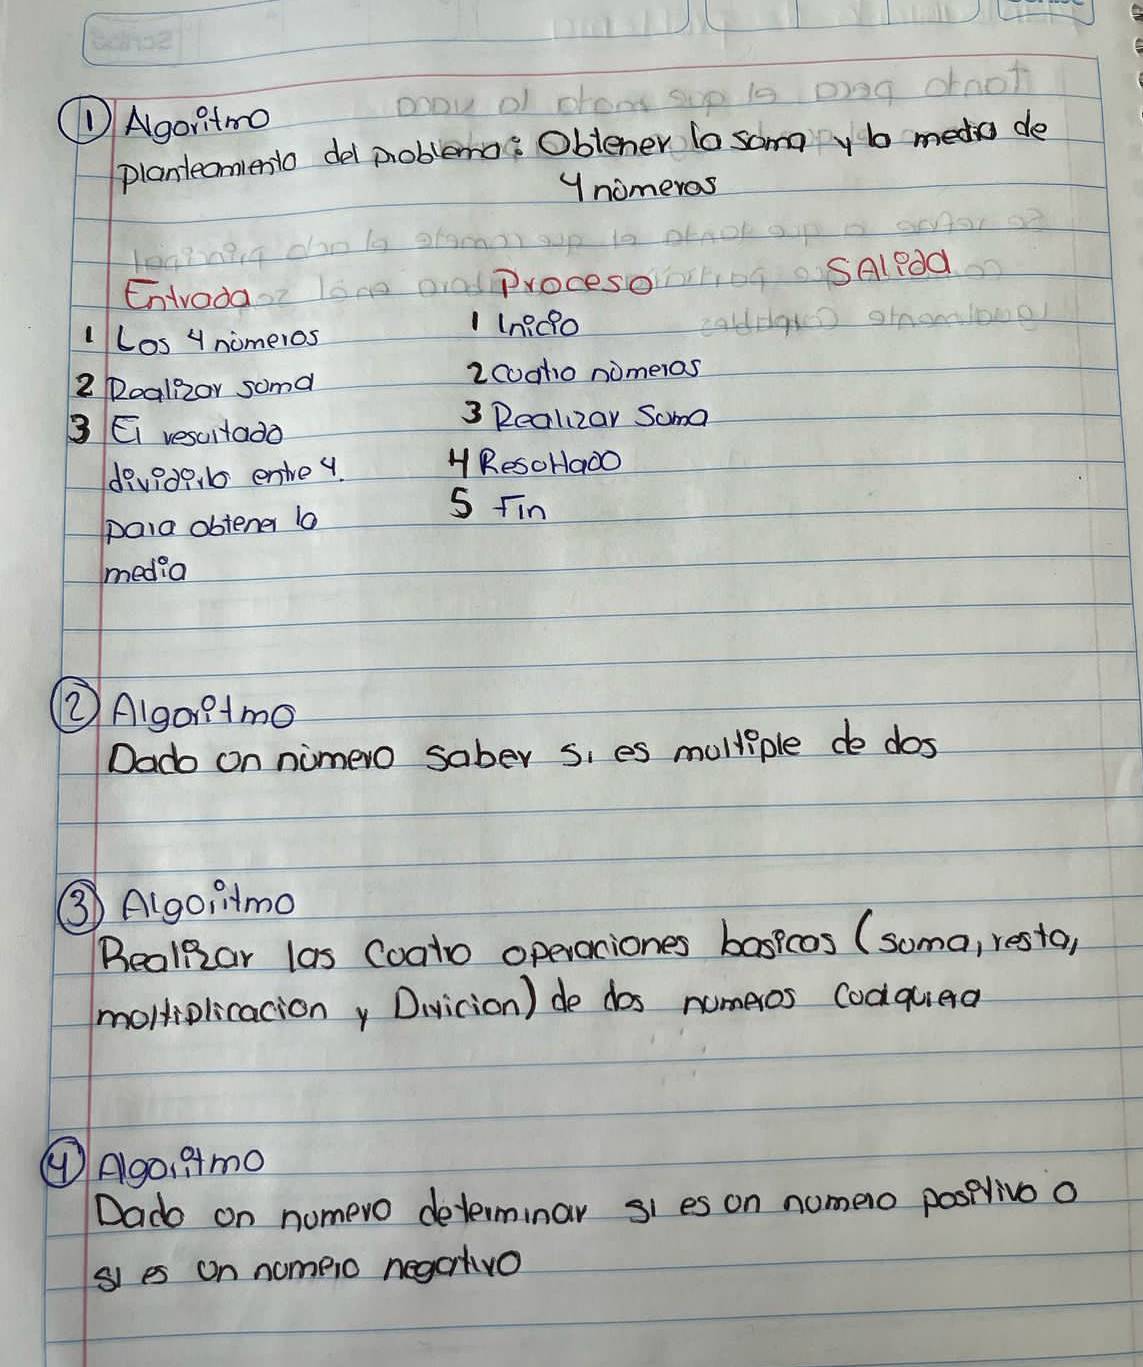 ① Algoritmo
planteamiento del problema: Obtener la suma y la media de
4 números
Entrada Proceso SAlida
1 Los 4 números 1 Inicio
2 Realizar suma 2 cuatro números
3 El resultado 3 Realizar Suma
dividirlo entre 4. 4 Resultado
para obtener la 5 Fin
media
② Algoritmo
Dado un número saber si es multiple de dos
③ Algoritmo
Realizar las Cuatro operaciones basicas (suma, resta,
multiplicacion y Divicion) de dos numeros Cualquiera
④ Algoritmo
Dado un numero determinar si es un numero positivo o
si es un numero negativo